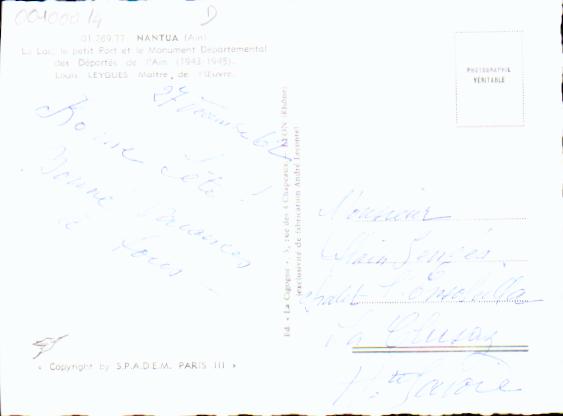 001000/4
D
01.269.77 NANTUA (Ain)
Le Lac, le petit Port et le Monument Départemental
des Déportés de l'Ain (1943-1945).
Louis LEYGUES Maître de l'Œuvre.
27
Bonne fête !
Bonne Vacances
à tous
« Copyright by S.P.A.D.E.M. PARIS III »
Ed. « La Cigogne », 5, rue des 4 Chapeaux, LYON (Rhône)
(exclusivité de fabrication André Leconte)
PHOTOGRAPHIE
VÉRITABLE
Monsieur
Alain
Chalet
La Clusaz
Hte Savoie